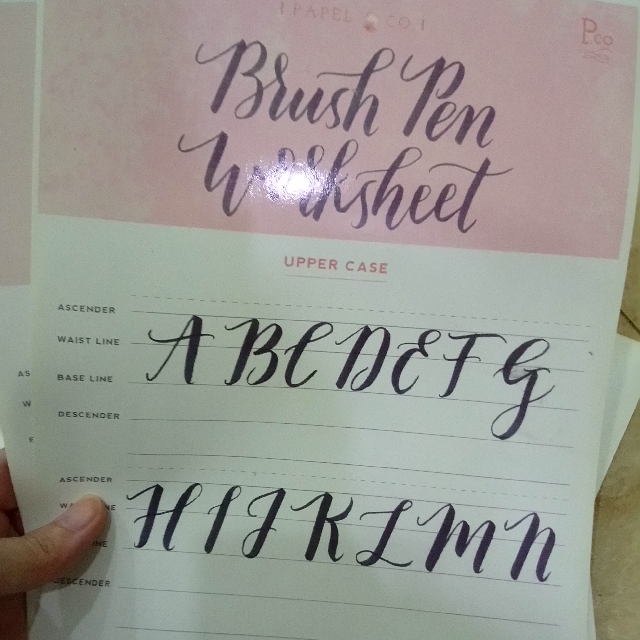 PAPEL CO
Pco
Brush Pen
Worksheet
UPPER CASE
ASCENDER
WAIST LINE
BASE LINE
DESCENDER
A B C D E F G
ASCENDER
DESCENDER
H I J K L M N